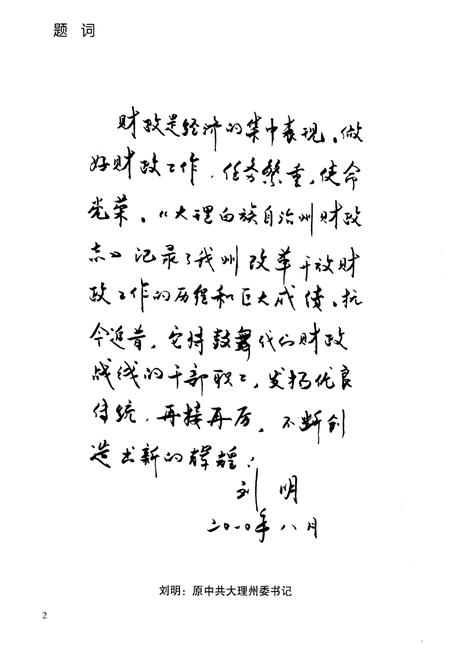 题 词
财政是经济的集中表现。做
好财政工作，任务繁重，使命
光荣。《大理白族自治州财政
志》记录了我州改革开放财
政工作的历程和巨大成绩。抚
今追昔，它将鼓舞一代代财政
战线的干部职工，发扬优良
传统，再接再厉，不断创
造出新的辉煌！
刘 明
二〇一〇年八月
刘明：原中共大理州委书记
2